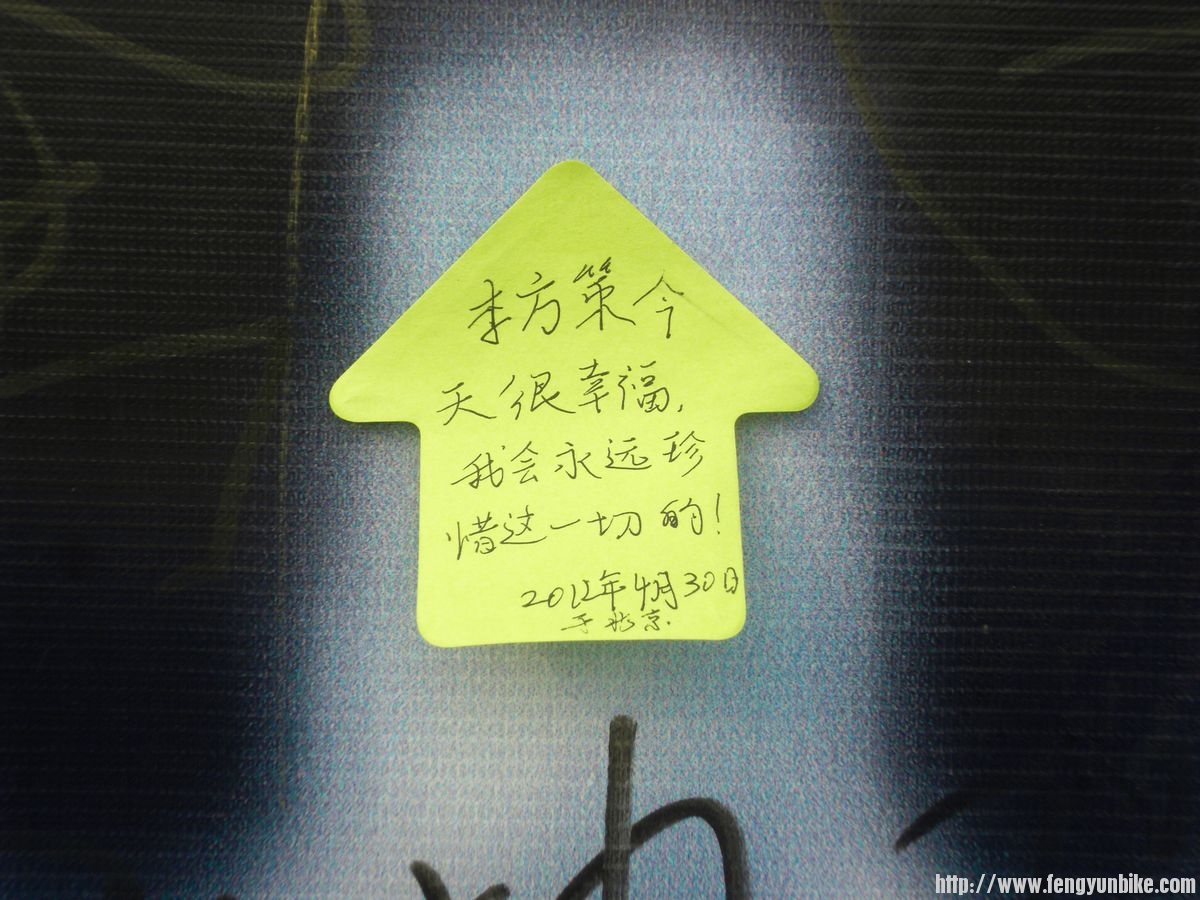 李方策今
天很幸福,
我会永远珍
惜这一切的!
2012年4月30日
于北京.
http://www.fengyunbike.com